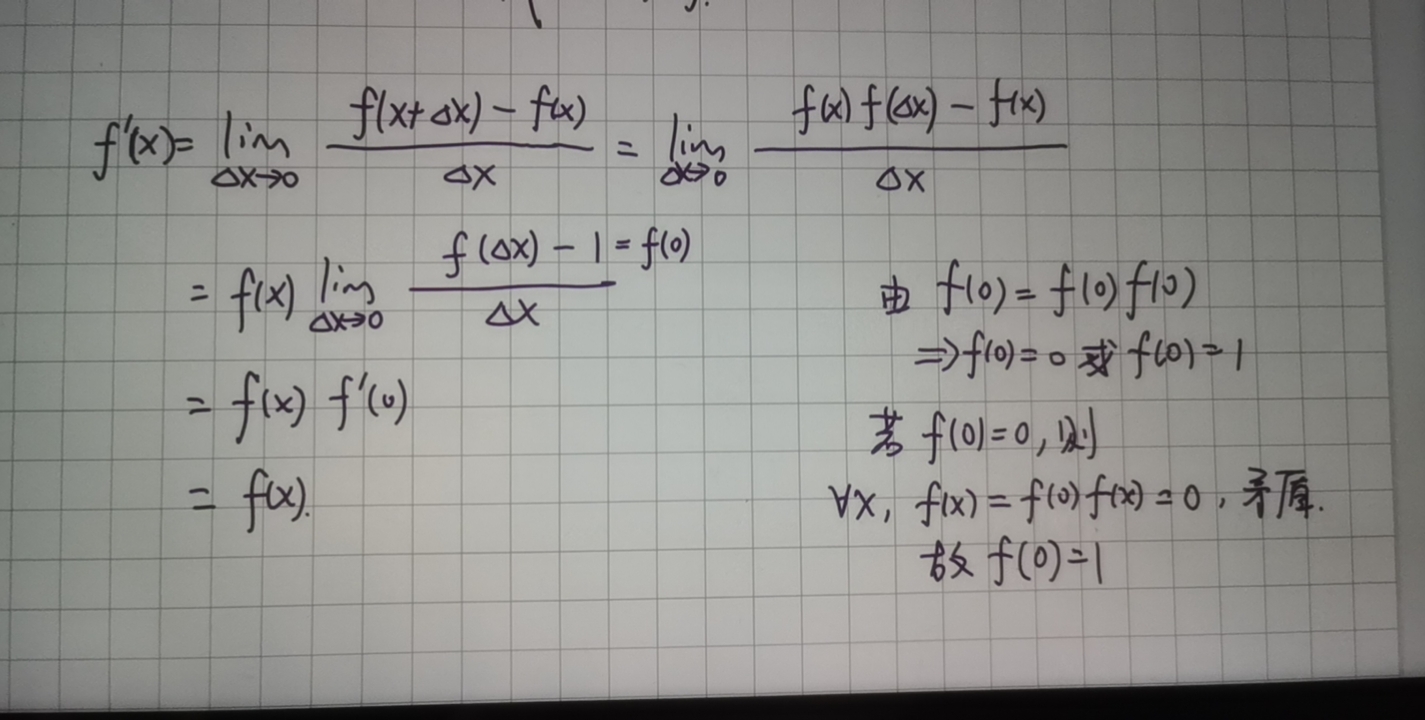 f'(x)= lim Δx→0 f(x+Δx)-f(x) / Δx = lim Δx→0 f(x)f(Δx)-f(x) / Δx
= f(x) lim Δx→0 f(Δx)-1=f(0) / Δx
= f(x) f'(0)
= f(x).
由 f(0)=f(0)f(0)
⇒f(0)=0 或 f(0)=1
若 f(0)=0,则
∀x, f(x)=f(0)f(x)=0,矛盾.
故 f(0)=1